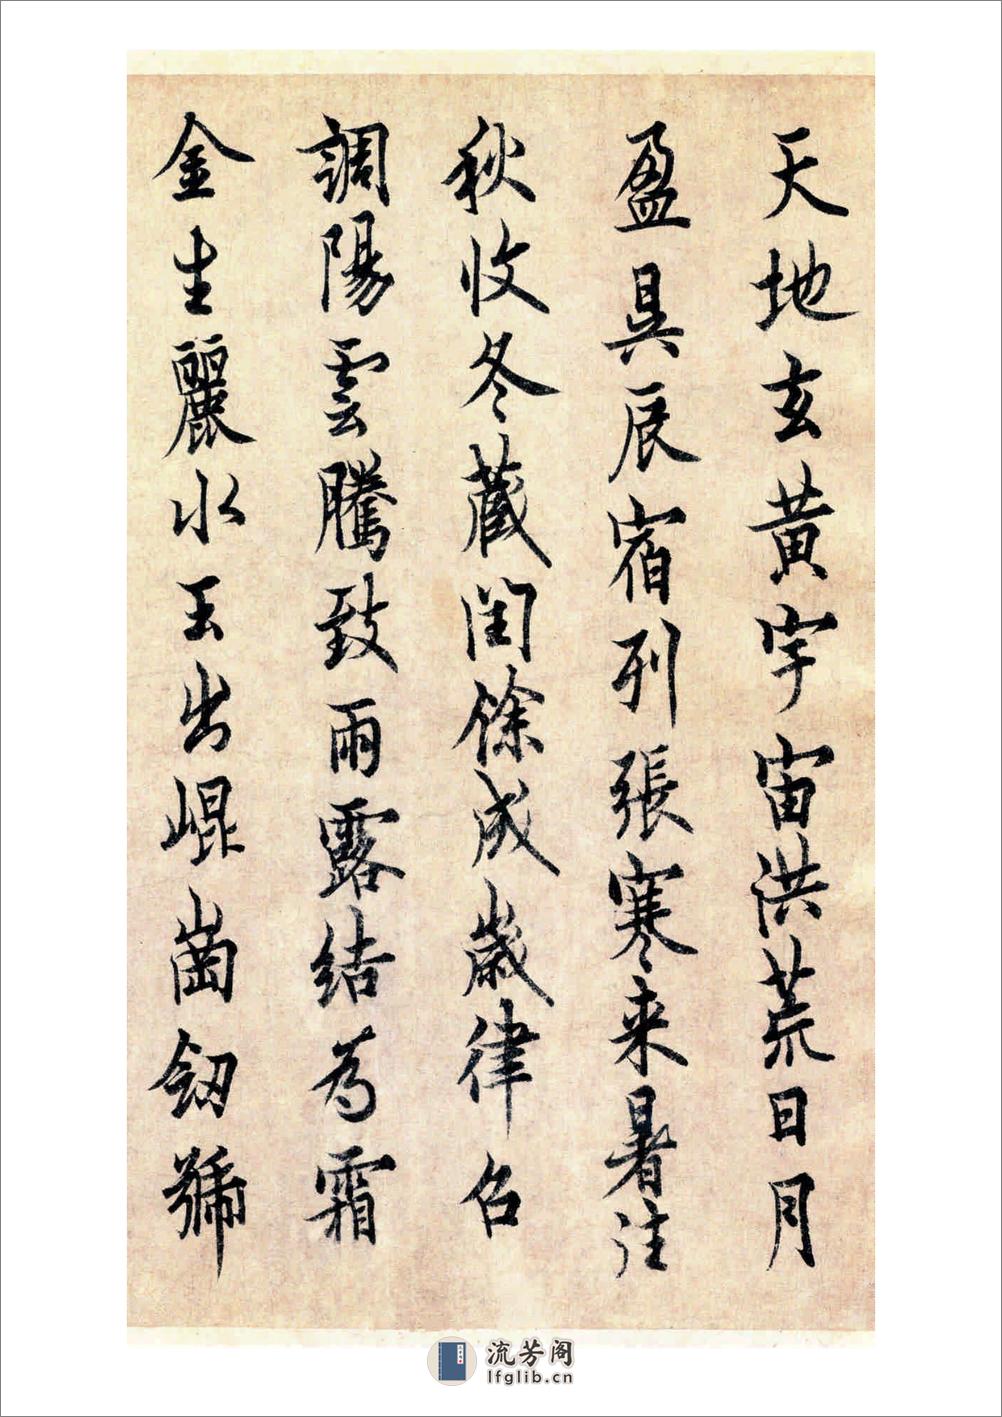 天地玄黃宇宙洪荒日月
盈昃辰宿列張寒来暑往
秋收冬藏閏餘成歲律召
調陽雲騰致雨露結為霜
金生麗水玉出崐崗劒號
流芳阁
lfglib.cn